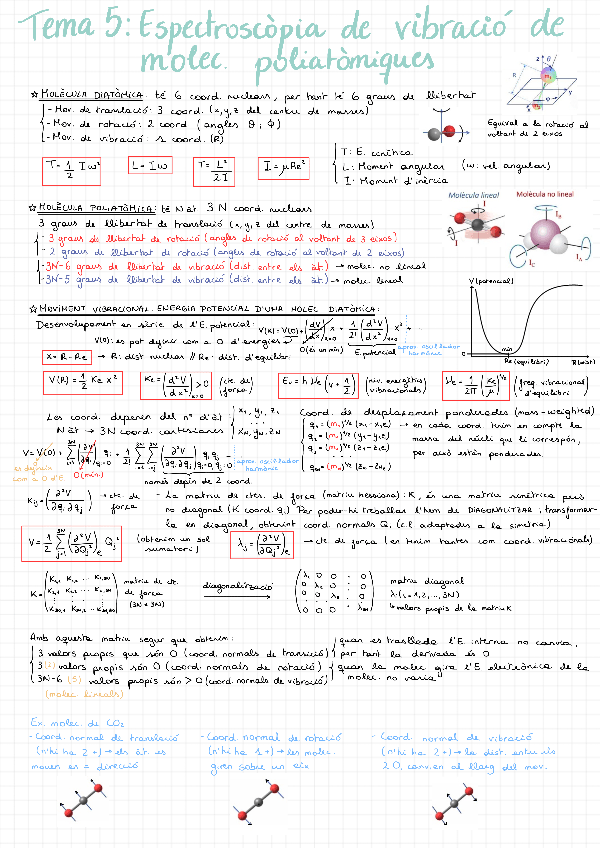 Tema 5: Espectroscòpia de vibració de
molec. poliatòmiques
☆ MOLÈCULA DIATÒMICA: té 6 coord. nuclears, per tant té 6 graus de llibertat
- Mov. de translació: 3 coord. (x, y, z del centre de masses)
- Mov. de rotació: 2 coord (angles θ i ϕ)
- Mov. de vibració: 1 coord. (R)
Equival a la rotació al
voltant de 2 eixos
T = 1/2 I w²
L = I w
T = L²/2I
I = μRe²
T: E. cinètica
L: Moment angular (w: vel angular)
I: Moment d'inèrcia
☆ MOLÈCULA POLIATÒMICA: té N àt 3N coord. nuclears
3 graus de llibertat de translació (x, y, z del centre de masses)
- 3 graus de llibertat de rotació (angles de rotació al voltant de 3 eixos)
- 2 graus de llibertat de rotació (angles de rotació al voltant de 2 eixos)
- 3N-6 graus de llibertat de vibració (dist. entre els àt.) → molec. no lineal
- 3N-5 graus de llibertat de vibració (dist. entre els àt.) → molec. lineal
Molècula lineal
Molècula no lineal
☆ MOVIMENT VIBRACIONAL. ENERGIA POTENCIAL D'UNA MOLEC. DIATÒMICA:
Desenvolupament en sèrie de l'E. potencial: V(x) = V(0) + (dV/dx)x=0 x + 1/2! (d²V/dx²)x=0 x² +
V(0): es pot definir com a 0 d'energies
0 (és un mín)
E. potencial
aprox. oscil·lador
harmònic
x = R - Re → R: dist nuclear // Re: dist. d'equilibri
V (potencial)
mín
Re (equilibri)
R (dist)
V(R) = 1/2 Ke x²
Ke = (d²V/dx²)x=0 > 0
(cte. de
força)
Ev = h νe (v + 1/2)
(niv. energètics
vibracionals)
νe = 1/2π (Ke/μ)^1/2
(freq vibracional
d'equilibri)
Les coord. depenen del nº d'àt
N àt → 3N coord. cartesianes
x1, y1, z1
xN, yN, zN
Coord. de desplaçament ponderades (mass-weighted)
q1 = (m1)^1/2 (x1 - x1e)
q2 = (m1)^1/2 (y1 - y1e)
q3 = (m1)^1/2 (z1 - z1e)
q3N = (mN)^1/2 (zN - zNe)
→ en cada coord. tenim en compte la
massa del nucli que li correspon,
per això estan ponderades.
es defineix
com a 0 d'E.
0 (mín.)
aprox. oscil·lador
harmònic
només depèn de 2 coord.
Kij = (∂²V/∂qi ∂qj) → cte. de
força
- La matriu de ctes. de força (matriu hessiana): K, és una matriu simètrica però
no diagonal (K coord. qi). Per poder-hi treballar l'hem de DIAGONALITZAR i transformar-
la en diagonal, obtenint coord. normals Q, (c.l adaptades a la simetria)
(obtenim un sol
sumatori)
λj = (∂²V/∂Qj²)e
→ cte. de força (en tenim tantes com coord. vibracionals)
matriu de cte.
de força
(3N × 3N)
diagonalització
matriu diagonal
λi (i = 1, 2, ..., 3N)
↳ valors propis de la matriu K
Amb aquesta matriu segur que obtenim:
3 valors propis que són 0 (coord. normals de translació)
3 (2) valors propis són 0 (coord. normals de rotació)
3N-6 (5) valors propis són > 0 (coord. normals de vibració)
(molec lineals)
quan es trasllada l'E. interna no canvia,
per tant la derivada és 0
quan la molec gira l'E electrònica de la
molec. no varia
Ex. molec. de CO2
- Coord normal de translació
(n'hi ha 2 +) → els àt. es
mouen en = direcció
- Coord. normal de rotació
(n'hi ha 1 +) → les molec.
giren sobre un eix
- Coord. normal de vibració
(n'hi ha 2 +) → la dist. entre els
2 O canvien al llarg del mov.